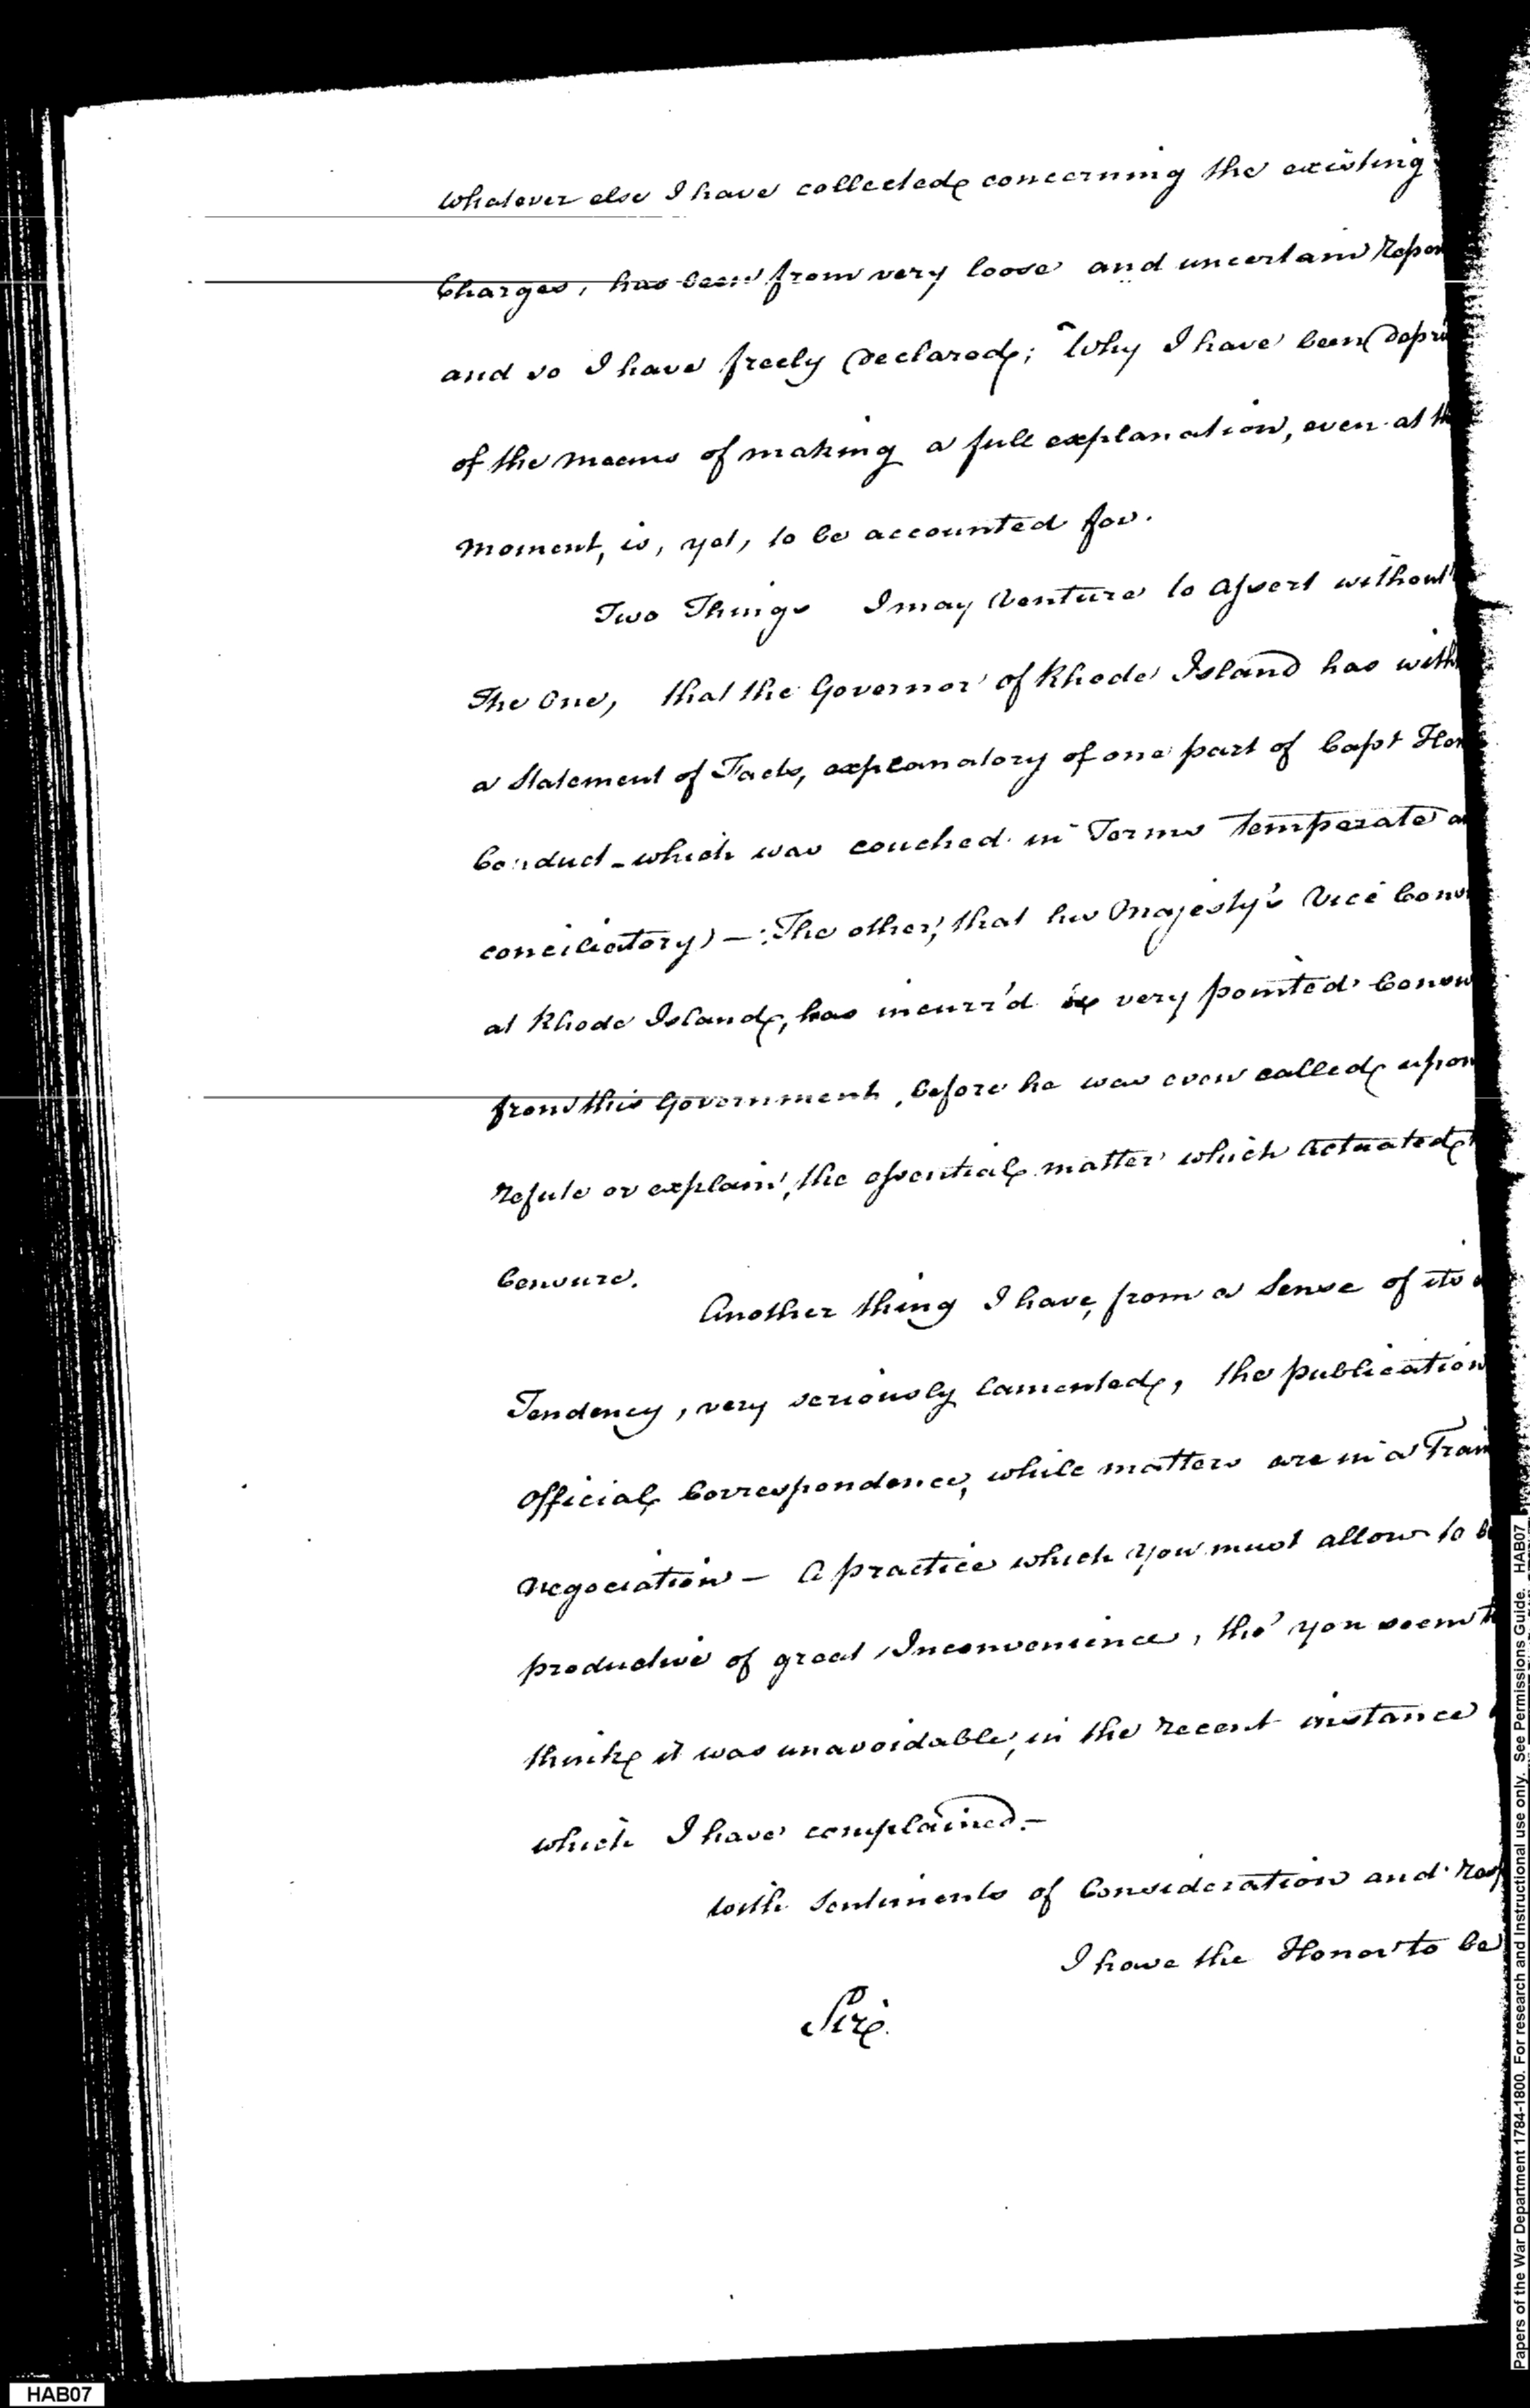 Whatever else I have collected concerning the existing
Charges, has been from very loose and uncertain Repor
and so I have freely Declared; Why I have been Depri
of the means of making a full explanation, even at th
moment, is, yet, to be accounted for.
Two Things I may Venture to assert without
The One, that the Governor of Rhode Island has with
a Statement of Facts, explanatory of one part of Capt Ho
Conduct - which was couched in Terms temperate a
conciliatory) - The other, that his Majesty's Vice Cons
at Rhode Island, has incurr'd very pointed Censu
from this Government, before he was even called upon
refute or explain, the essential matter which actuated
Censure.
Another thing I have, from a Sense of its
Tendency, very seriously lamented, the publication
Official Correspondence, while matters are in a Train
Negociation - A practice which You must allow to b
productive of great Inconvenience, tho' you seem t
think it was unavoidable, in the recent instance
which I have complained. -
With Sentiments of Consideration and Resp
I have the Honor to be
Sir.
HAB07
Papers of the War Department 1784-1800. For research and Instructional use only. See Permissions Guide. HAB07